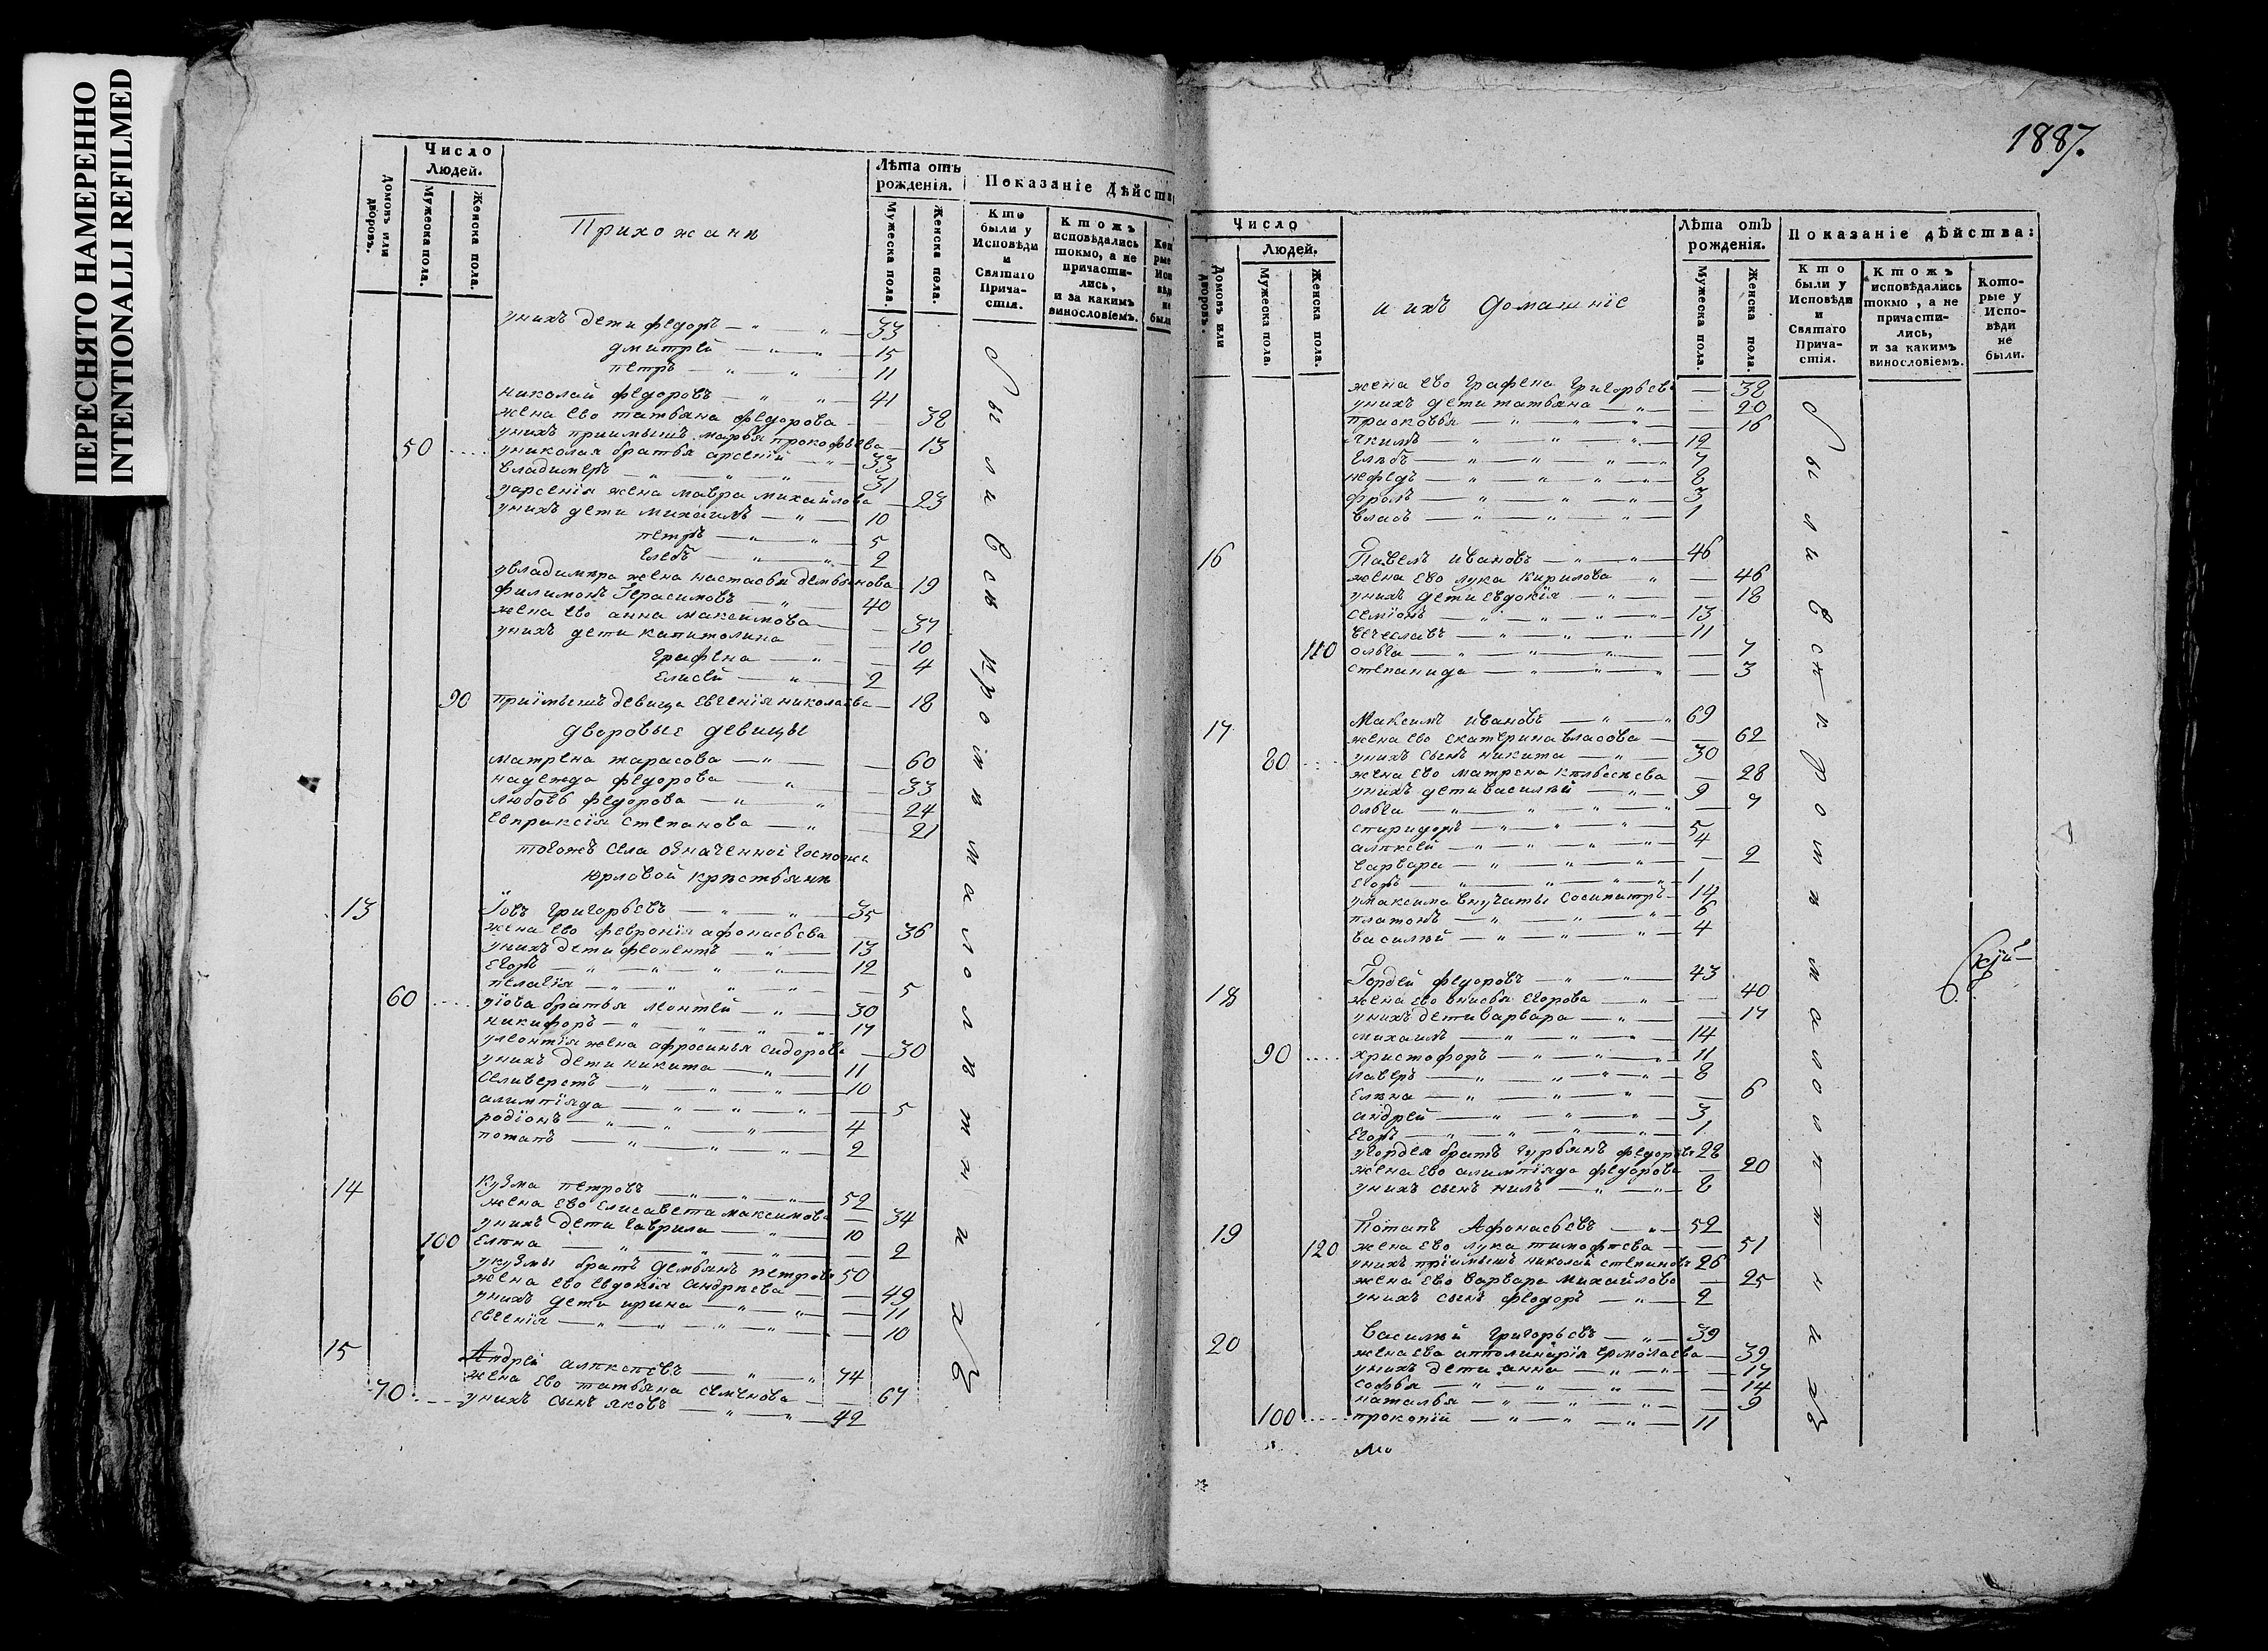 ПЕРЕСНЯТО НАМЕРЕННО
INTENTIONALLI REFILMED
Число
Людей.
Домовъ или дворовъ.
Мужеска пола.
Женска пола.
Прихожанѣ
Лѣта отъ рожденія.
Мужеска пола.
Женска пола.
Показаніе дѣйств
Кто были у Исповѣди и Святаго Причастія.
Ктожъ исповѣдались токмо, а не причастились, и за какимъ винословіемъ.
унихъ дети федоръ 33
дмитрей 15
петръ 11
николай федоровъ 41
жена ево татьяна федорова 38
унихъ приимышъ марья прокофьева 13
50 униколая братья арсеній 33
владимеръ 31
уарсенія жена мавра михайлова 23
унихъ дети михаилъ 10
петръ 5
глебъ 2
увладимира жена настасья демьянова 19
филимонъ Герасимовъ 40
жена ево анна максимова 37
унихъ дети капитолина 10
Графена 4
Елисей 2
90 приімышъ девица евгенія николаева 18
дворовые девицы
матрена тарасова 60
надежда федорова 33
любовь федорова 24
евпраксія степанова 21
тогожъ села означенной госпожи
юрловой крѣстьянѣ
13 Іовъ григорьевъ 35
жена ево февронія афонасьева 36
унихъ дети феопентъ 13
Егоръ 12
пелагія 5
60 уіова братья леонтей 30
никифоръ 17
улеонтія жена афросинья сидорова 30
унихъ дети никита 11
селиверстъ 10
алимпіяда 5
родіонъ 4
потапъ 2
14 кузма петровъ 52
жена ево елисавета максимова 34
унихъ дети гаврила 10
100 Елѣна 2
укузмы братъ демьянъ петровъ 50
жена ево евдокія андрѣева 49
унихъ дети ирина 11
евгенія 10
15 Андрей алѣксѣевъ 74
жена ево татьяна семенова 67
70 унихъ сынъ яковъ 42
были вси кромѣ малолѣтнихъ
1887.
Число
Людей.
Домовъ или дворовъ.
Мужеска пола.
Женска пола.
и ихъ домашніе
Лѣта отъ рожденія.
Мужеска пола.
Женска пола.
Показаніе дѣйства:
Кто были у Исповѣди и Святаго Причастія.
Ктожъ исповѣдались токмо, а не причастились, и за какимъ винословіемъ.
Которые у Исповѣди не были.
жена ево Графена Григорьева 38
унихъ дети татьяна 20
прасковья 16
екимъ 12
глѣбъ 7
нефедъ 8
фролъ 3
власъ 1
16 Павелъ ивановъ 46
жена ево лука кирилова 46
унихъ дети евдокія 18
семіонъ 13
вечеславъ 11
110 ольга 7
степанида 3
17 Максимъ ивановъ 69
жена ево екатерина власова 62
80 унихъ сынъ никита 30
жена ево матрена 28
унихъ дети василѣй 9
ольга 7
спиридонъ 5
алѣксей 4
варвара 2
егоръ 1
умаксима внучаты сосипатръ 14
платонъ 6
василѣй 4
18 Гордей федоровъ 43
жена ево анисья егорова 40
унихъ дети варвара 17
михаилъ 14
90 христофоръ 11
лаверъ 8
Елѣна 6
андрей 3
Егоръ 1
угордея братъ гурьянъ федоровъ 28
жена ево алимпіяда федорова 20
унихъ сынъ нилъ 8
19 Потапъ Афонасьевъ 52
120 жена ево лука тимофѣева 51
унихъ пріимышъ николай степановъ 26
жена ево варвара михайлова 25
унихъ сынъ федоръ 2
20 василѣй григорьевъ 39
жена ева апполинарія ермолаева 39
унихъ дети анна 17
софья 14
наталья 9
100 прокопій 11
были вси кромѣ малолѣтнихъ